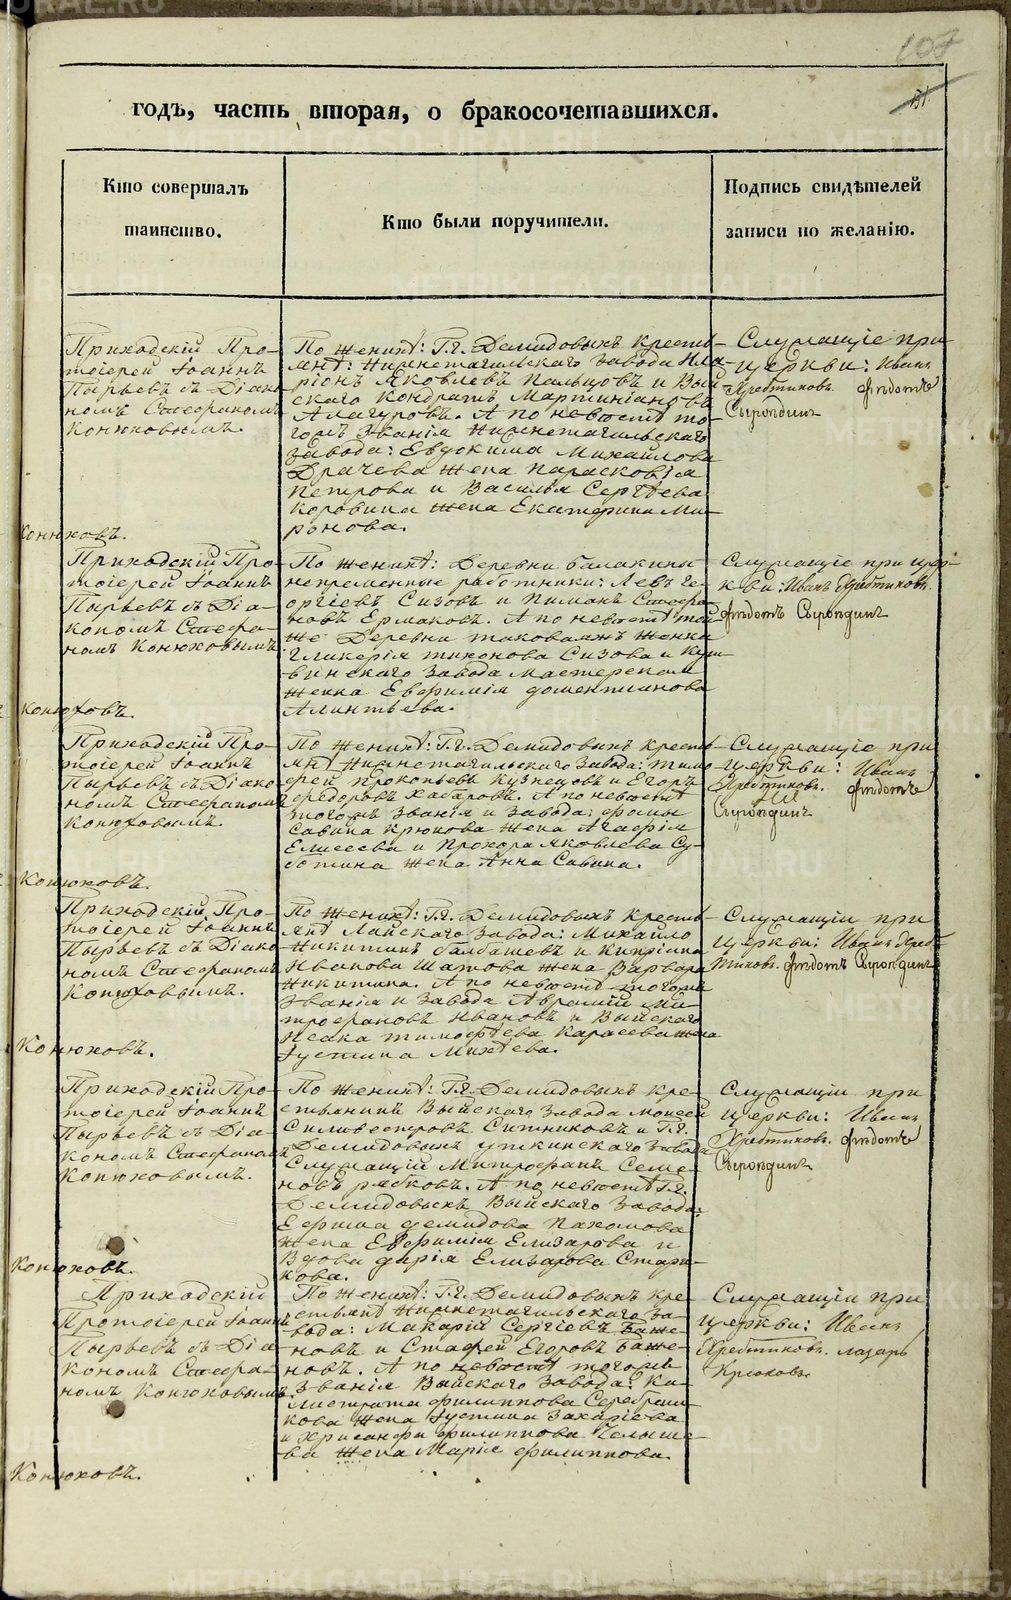 107
годъ, часть вторая, о бракосочетавшихся.
Кто совершалъ
таинство.
Кто были поручители.
Подпись свидѣтелей
записи по желанію.
Приходскій Про-
тоіерей Іоаннъ
Пырьевъ съ Діако
номъ Стефаномъ
Конюховымъ.
Конюховъ.
По женихѣ: Г.г. Демидовыхъ кресть-
янѣ: Нижнетагильскаго завода Ила
ріонъ Яковлевъ Пальцовъ и Вый
скаго Кондратъ Мартиніановъ
А по невѣстѣ то-
гожъ званія Нижнетагильскаго
завода: Евдокима Михайлова
Драчева жена Парасковія
Петрова и Василья Сергѣева
Коровина жена Екатерина Ми-
ронова.
Служащіе при
церкви: Иванъ
Хребтиковъ. Ѳедотъ
Сыропдинъ
Приходскій Про-
тоіерей Іоаннъ
Пырьевъ съ Діа-
кономъ Стефа-
номъ Конюховымъ
Конюховъ.
По женихѣ: Деревни Балакины
непременные работники: Левъ Ге-
оргіевъ Сизовъ и Пиманъ Стефа-
новъ Ермаковъ. А по невѣстѣ той
же Деревни таковажъ женка
Гликерія Тихонова Сизова и Куш
винскаго Завода Мастерскаго
женка Евфимія Дометианова
Приходскій Про-
тоіерей Іоаннъ
Пырьевъ съ Діако
номъ Стефаномъ
Конюховымъ.
Конюховъ.
Служащіе при цер-
кви: Иванъ Хребтиковъ.
Ѳедотъ Сыропдинъ
По женихѣ: Г.г. Демидовыхъ кресть-
янѣ Нижнетагильскаго Завода: Тимо
фей Прокопьевъ Кузнецовъ и Егоръ
Ѳедоровъ Хабаровъ. А по невѣстѣ
тогожъ Званія и Завода: Фомы
Савина Крюкова жена Агафія
Елисеева и Прохора Яковлева Су-
ботина жена Анна Савина.
Служащіе при
церкви: Иванъ
Хребтиковъ. Ѳедотъ
Сыропдинъ
Приходскій Про-
тоіерей Іоаннъ
Пырьевъ съ Діако
номъ Стефаномъ
Конюховымъ.
Конюховъ.
По женихѣ: Г.г. Демидовыхъ кресть-
янѣ Лайскаго Завода: Михайло
Никитинъ Балбашевъ и Кипріяна
Иванова Шатова жена Варвара
Никитина. А по невѣстѣ тогожъ
Званія и Завода Аврамій Ми-
трофановъ Ивановъ и Выйскаго
Исака Тимофѣева Карасева жена
Іустина Михѣева.
Служащіи при
церкви: Иванъ Хреб-
тиковъ. Ѳедотъ Сыропдинъ
Приходскій Про-
тоіерей Іоаннъ
Пырьевъ съ Діа-
кономъ Стефаномъ
Конюховымъ.
Конюховъ.
По женихѣ: Г.г. Демидовыхъ кре-
стьянинъ Выйскаго Завода Моисей
Сильвестровъ Ситниковъ и Г.г.
Демидовыхъ Уткинскаго Завода
Служащій Митрофанъ Семе-
новъ Рябковъ. А по невѣстѣ Г.г.
Демидовыхъ Выйскаго Завода:
Ефима Демидова Пахомова
жена Евфимія Елизарова и
Вдова Дарія Елизарова Стари-
кова.
Служащіи при
церкви: Иванъ
Хребтиковъ. Ѳедотъ
Сыропдинъ
Приходскій
Протоіерей Іоаннъ
Пырьевъ съ Діа
кономъ Стефа-
номъ Конюховымъ
Конюховъ.
По женихѣ: Г.г. Демидовыхъ кре-
стьянѣ Нижнетагильскаго За-
вода: Макарій Сергіевъ Баже-
новъ и Стафей Егоровъ Баже-
новъ. А по невѣстѣ тогожъ
Званія Выйскаго Завода: Ка-
листрата Филиппова Серебрени-
кова жена Іустина Захаріева
и Хрисанфа Филиппова Челыше-
ва жена Марія Филиппова.
Служащіи при
церкви: Иванъ
Хребтиковъ. Лазарь
Крюковъ
METRIKI.GASO-URAL.RU